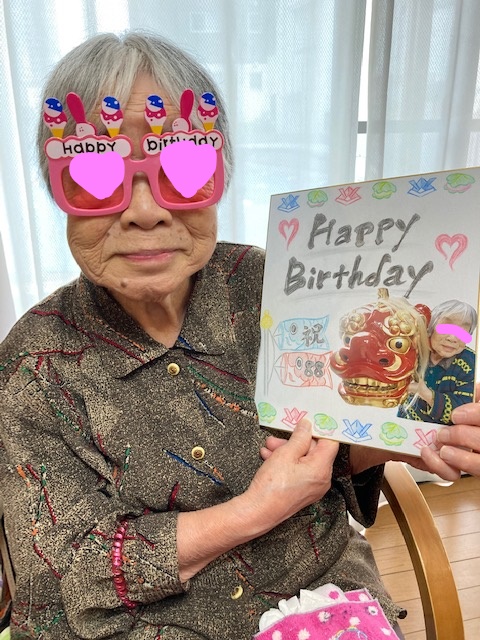 Happy Birthday
Happy
Birthday
祝
88